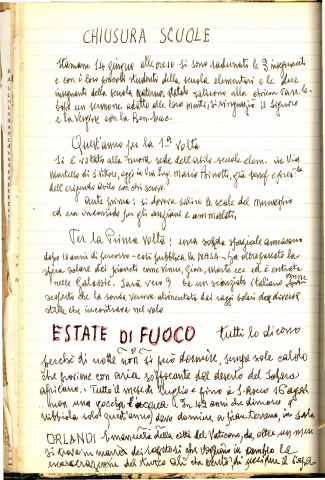 CHIUSURA SCUOLE
Stamane 14 giugno alle ore si sono radunati le 3 insegnanti
e con i loro piccoli studenti della scuola elementari e le due
insegnanti della scuola materna
un sermone adatto alle loro menti, si ringrazio il Signore
e la Vergine con la
Quest'anno per la 1ª volta
Si è votato alla nuova sede dell'asilo-scuole elem. in Via
Martello di S. Vittore, oggi in Via Ing. Mario
dell'erigendo asilo con chi scrive
Ante prima: si doveva salire le scale del municipio
ed era incomodo per gli anziani e ammalati,
Per la Prima volta: una sonda spaziale americana
dopo 10 anni di percorso - così pubblica la NASA - ha oltrepassato la
sfera solare dei pianeti come Venus, Giove, Marte ecc ed è entrata
nelle Galassie. Sarà vero? da un scienziato italiano
scoperto che la sonda veniva alimentata dai raggi solari da diverse
stelle che incontrava nel volo
ESTATE DI FUOCO tutti lo dicono
perchè di notte non si può dormire, sempre sole caldo
che proviene con aria soffocante dal deserto del Sahara
africano. Tutto il mese di luglio e fino à
non una goccia d'acqua. In 42 anni che dimoro
solo quest'anno devo dormire a pian terreno, in sala
ORLANDI Emanuela della città del Vaticano, da oltre un mese
si trova in mano dei rapitori che vogliono in cambio la
scarcerazione del turco Alì che tentò di uccidere il Papa